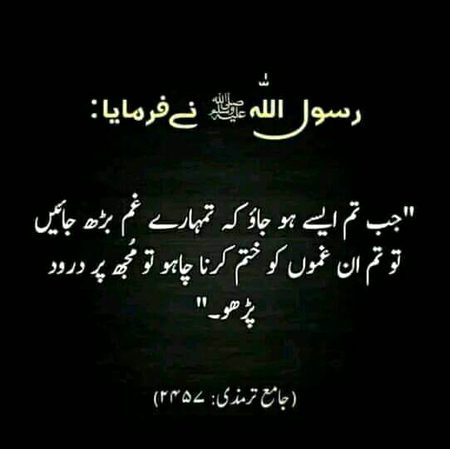 رسول اللّٰہ ﷺ نے فرمایا:
"جب تم ایسے ہو جاؤ کہ تمہارے غم بڑھ جائیں
تو تم ان غموں کو ختم کرنا چاہو تو مُجھ پر درود
پڑھو۔"
(جامع ترمذی: ۲۴۵۷)